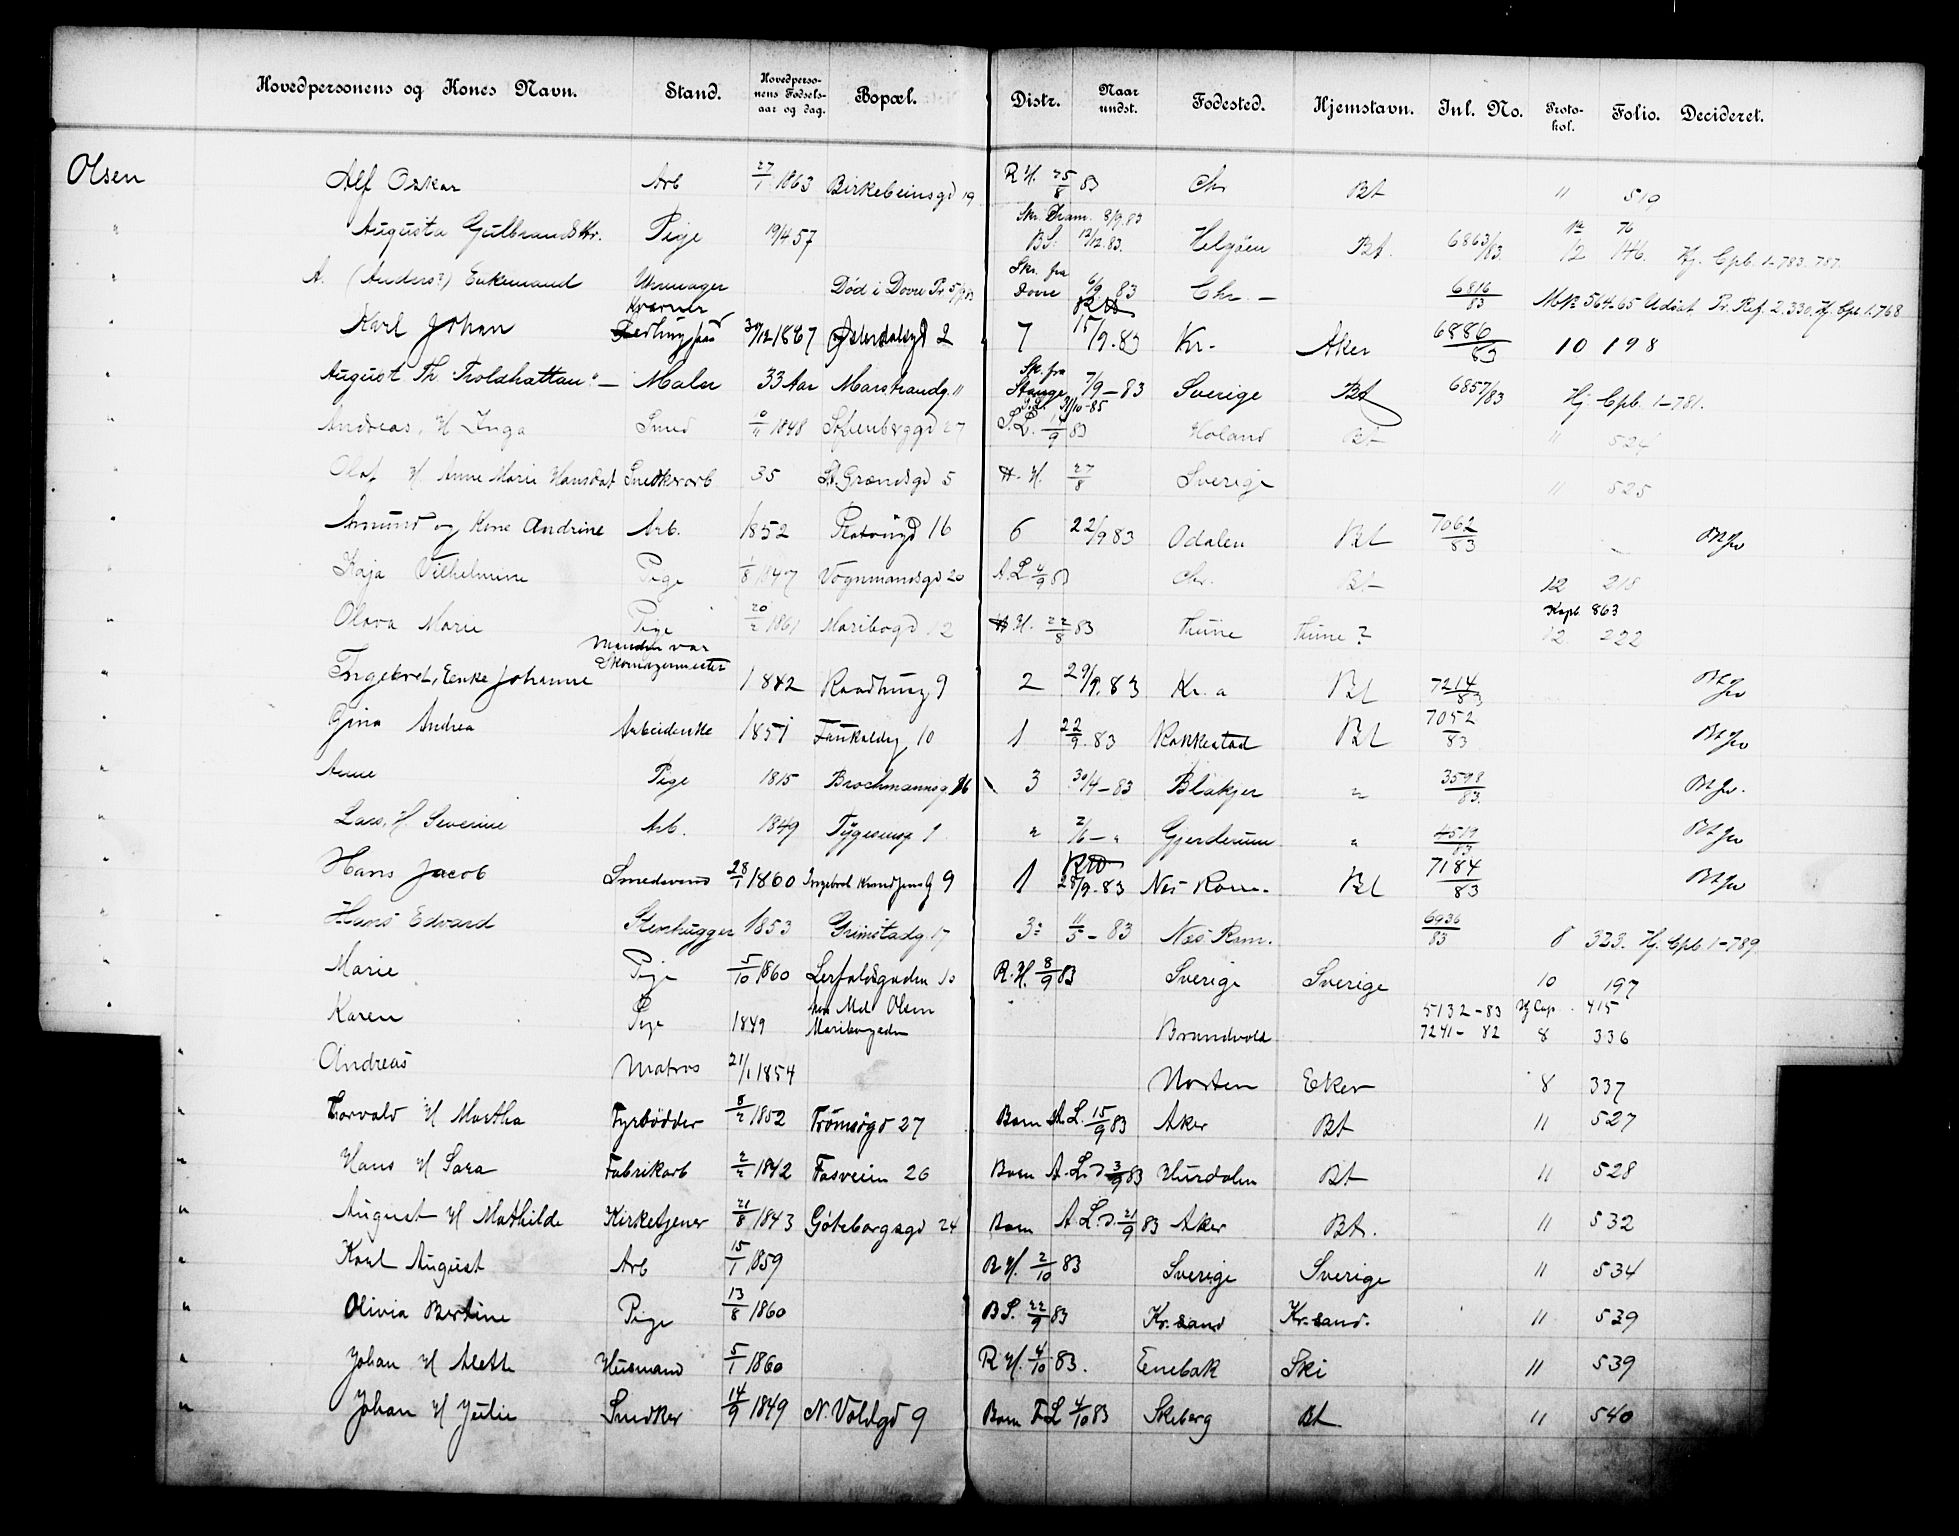 Hovedpersonens og Kones Navn. Stand. Hovedpersonens Fødselsaar og dag. Bopæl. Distr. Naar undst. Fødested. Hjemstavn. Inl. No. Protokol. Folio. Decideret.
Olsen Alf Oskar Arb 27/1 1863 Birkebeinsgd 19 R.H. 25/8 83 Chr Bt 11 519
" Augusta Gulbrandsdtr. Pige 19/4 57 Skr. Fram. 8/9.83 B.S. 12/12.83. Helgøen Bt. 6863/83. 12 12 76 146. Hj. Cpb. 1-783. 787.
" A. (Anders?) Enkemand Urmager Død i Dovre Skr. fra Dovre 6/9 83 Chr. — 6816/83 564.65 Udsat Pr. Ref. 2.330. Hj. Cpb 1.768
Karl Johan 30/12 1867 Østerdalsgd 2 7 15/9.83 Kr. Aker 6886/83 10 198
" August Th. "Troldhattan" — Maler 33 Aar Marstrandg. 11 Sk. fra Stange 7/9 — 83 S.L. 31/10-85 Sverige Bt 6857/83 Hj. Cpb. 1-781.
" Andreas, H Inga Smed 1848 27 S.L. 14/9 83 Holand Bt 11 524
" Olaf H. Anne Marie Hansdat Snedkerarb 35 St. Grændsgd 5 H. 27/8 Sverige 11 525
" Amund og Kone Andrine Arb. 1852 16 6 22/9 83 Odalen Bt 7062/83 Bt Jw
" Kaja Vilhelmine Pige 1/8 1847 Vognmandsgd 20 A.L 4/9 83 Chr. Bt 12 218
" Olava Marie Pige 20/2 1861 Maribogd 12 H. 22/8 83 Thune Thune? Kopb 863 12 222
" Ingebret, Enke Johanne Manden var Skomagermester 1842 Raadhusg 9 2 29/9.83 Kr.a Bt 7214/83 Bt Jw
" Gina Andrea Arbeiderske 1851 10 1 22/9.83 Rakkestad Bt 7052/83 Bt Jw
" Anne Pige 1815 Brochmannsg 16 3 30/4 — 83 Blakjer " 3598/83. Bt Jw.
" Lars, H. Severine Arb. 1849 1 " 2/6 — " Gjerderum " 4519/83 Bt Jw
" Hans Jacob Smedsvend 28/1 1860 9 1 28/9.83 Nes Rom. Bt 7184/83 Bt Jw
" Hans Edvard Stenhugger 1853 Grimstadg. 17 3 11/5 — 83 Næs Rom. 6936/83 8 323. Hj. Cpb. 1-789.
" Marie Pige 5/10 1860 Lerfaldsgaden 10 R.H. 8/9 83 Sverige Sverige 10 197
" Karen Pige 1849 hos Md Olsen Maribogaden Brandvold 5132-83 7241-82 Hj Cop 8 415 336
" Andreas Matros 21/1 1854 Norten Eker 8 337
" Torvald H Martha Fyrbødder 8/2 1852 Tromsøgd 27 Barn A.L. 15/9 83 Aker Bt 11 527
" Hans H Sara Fabrikarb 2/2 1842 Fosveien 26 Barn A.L.D 3/9 83 Hurdalen Bt 11 528
" August H Mathilde Kirketjener 21/8 1843 Gøteborgsgd 24 Barn A.L.D. 21/9 83 Aker Bt. 11 532
" Karl August Arb 15/1 1859 R.H. 2/10 83 Sverige Sverige 11 534
" Olivia Bertine Pige 13/8 1860 B.S. 22/9 83 Kr.sand Kr.sand. 11 539
" Johan H Aleth Husmand 5/1 1860 R.H. 4/10 83. Enebak Ski 11 539
" Johan H Julie Snedker 14/9 1849 N. Voldgd 9 Barn F.L 4/10 83 Skeberg Bt 11 540